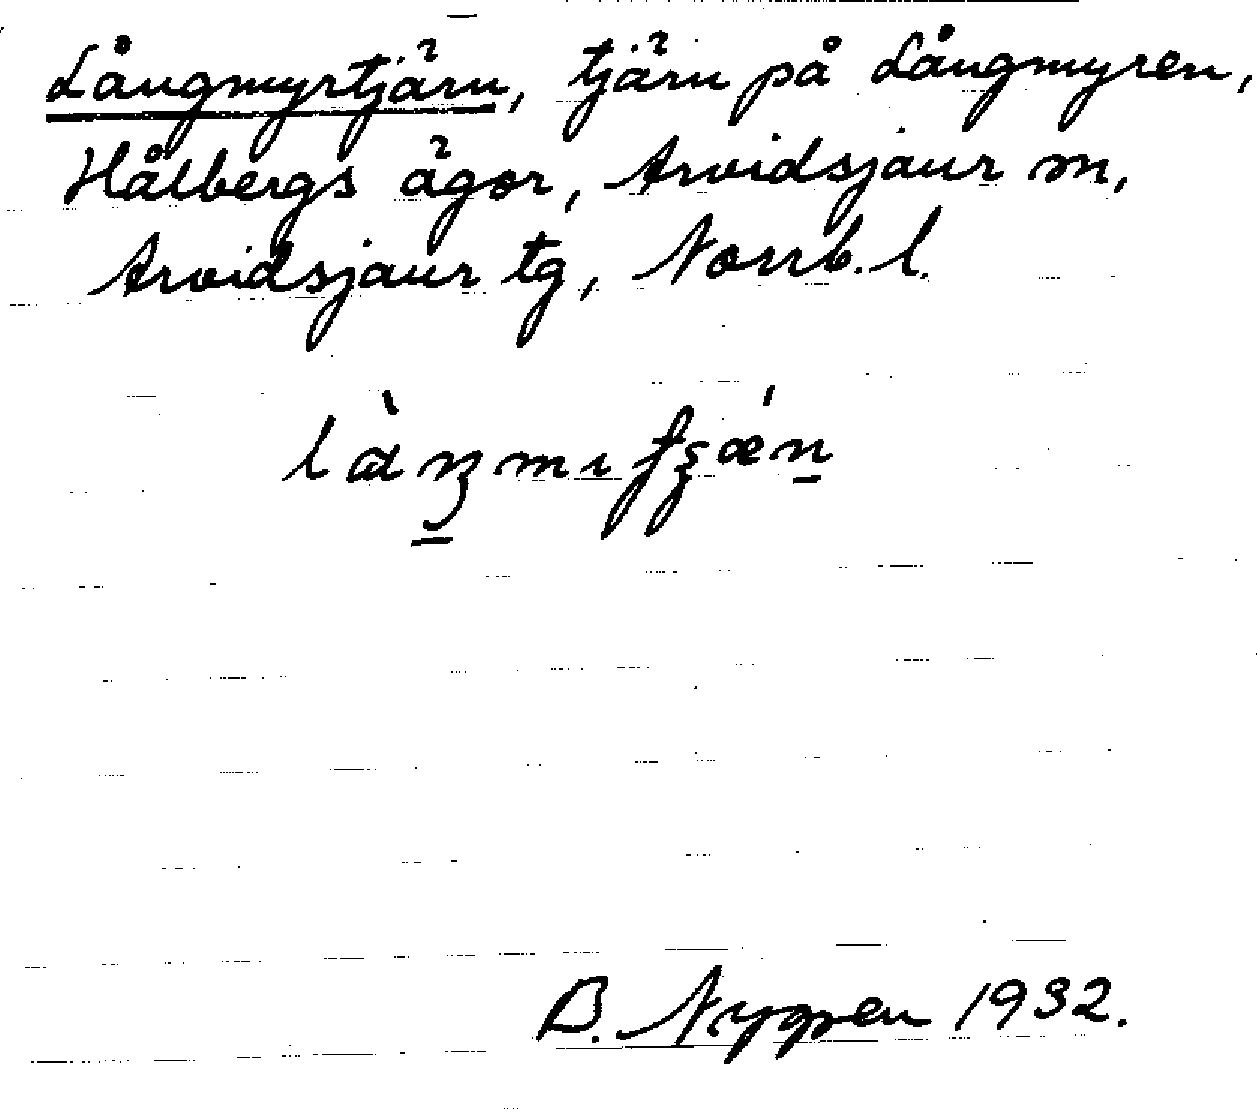 Långmyrtjärn, tjärn på Långmyren,
Hålbergs ägor, Arvidsjaur sn,
Arvidsjaur tg, Norrb. l.
B. Nygren 1932.